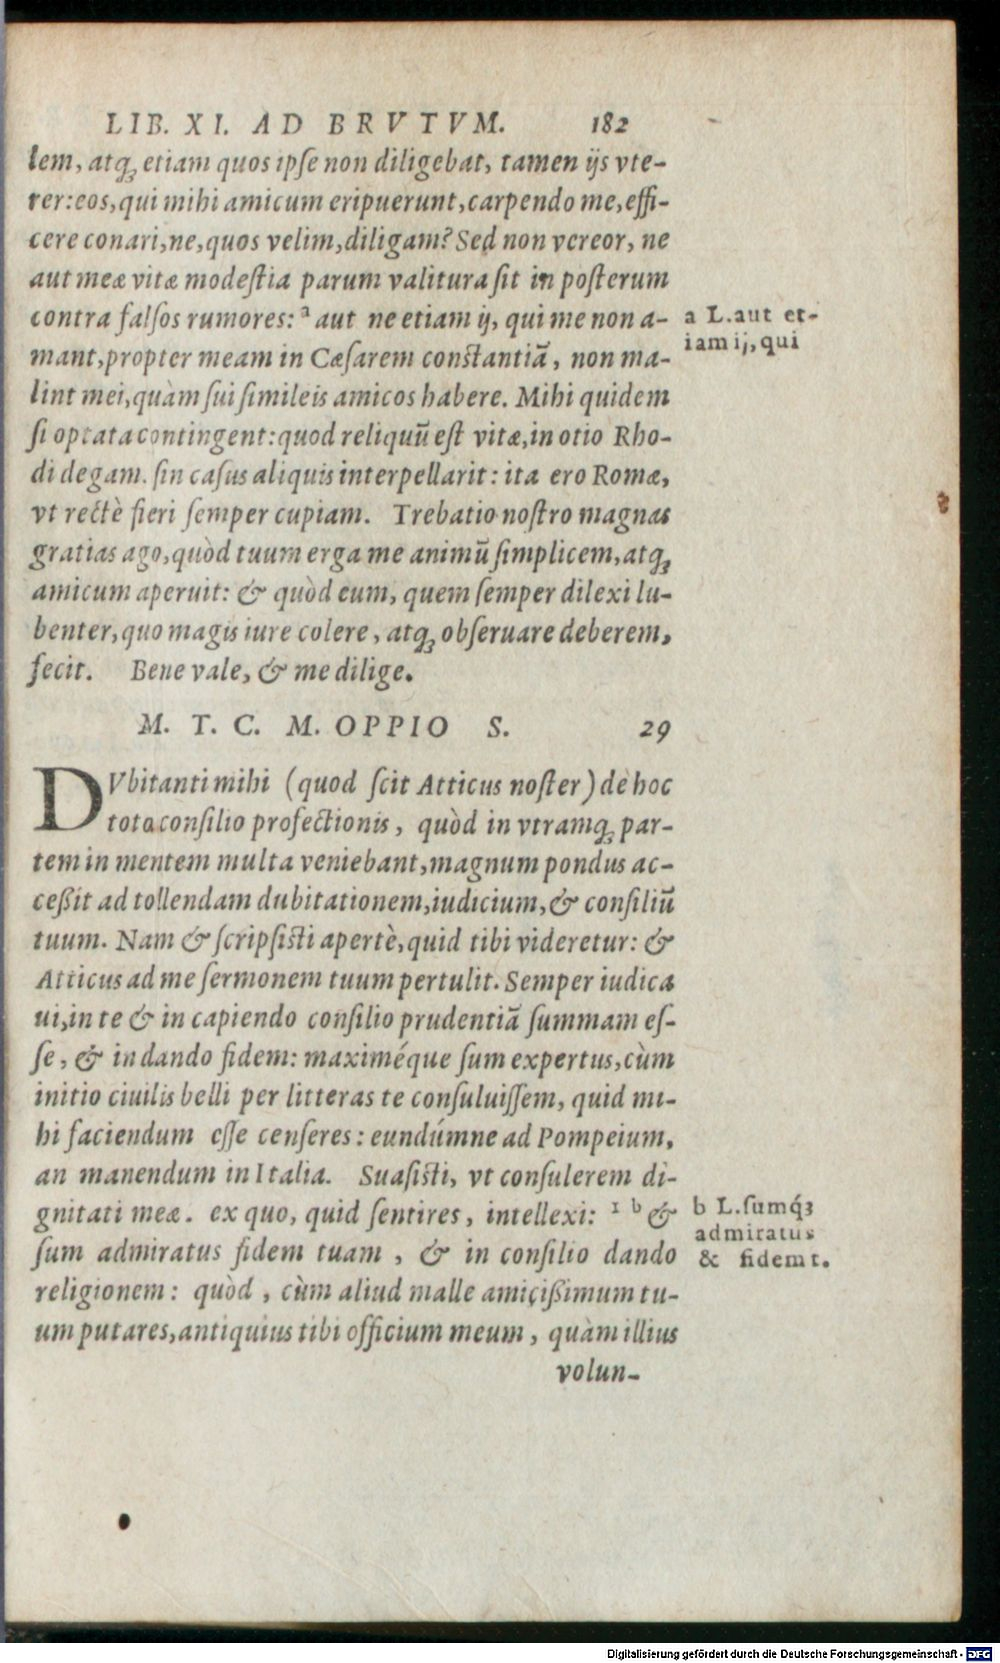 LIB. XI. AD BRVTVM. 182
lem, atqꝫ etiam quos ipſe non diligebat, tamen ijs vte-
rer: eos, qui mihi amicum eripuerunt, carpendo me, effi-
cere conari, ne, quos velim, diligam? Sed non vereor, ne
aut meæ vitæ modeſtia parum valitura ſit in poſterum
contra falſos rumores: ᵃ aut ne etiam ij, qui me non a-
a L. aut et-
iam ij, qui
mant, propter meam in Cæſarem conſtantiā, non ma-
lint mei, quàm ſui ſimileis amicos habere. Mihi quidem
ſi optata contingent: quod reliquū eſt vitæ, in otio Rho-
di degam. ſin caſus aliquis interpellarit: ita ero Romæ,
vt rectè fieri ſemper cupiam. Trebatio noſtro magnas
gratias ago, quòd tuum erga me animū ſimplicem, atqꝫ
amicum aperuit: & quòd eum, quem ſemper dilexi lu-
benter, quo magis iure colere, atqꝫ obſeruare deberem,
fecit. Bene vale, & me dilige.
M. T. C. M. OPPIO S. 29
DVbitanti mihi (quod ſcit Atticus noſter) de hoc
toto conſilio profectionis, quòd in vtramqꝫ par-
tem in mentem multa veniebant, magnum pondus ac-
ceßit ad tollendam dubitationem, iudicium, & conſiliū
tuum. Nam & ſcripſiſti apertè, quid tibi videretur: &
Atticus ad me ſermonem tuum pertulit. Semper iudica
ui, in te & in capiendo conſilio prudentiā ſummam eſ-
ſe, & in dando fidem: maximéque ſum expertus, cùm
initio ciuilis belli per litteras te conſuluiſſem, quid mi-
hi faciendum eſſe cenſeres: eundúmne ad Pompeium,
an manendum in Italia. Suaſiſti, vt conſulerem di-
gnitati meæ. ex quo, quid ſentires, intellexi: ¹ ᵇ &
b L. ſumq́ꝫ
admiratus
& fidem t.
ſum admiratus fidem tuam, & in conſilio dando
religionem: quòd, cùm aliud malle amicißimum tu-
um putares, antiquius tibi officium meum, quàm illius
volun-
Digitalisierung gefördert durch die Deutsche Forschungsgemeinschaft - DFG